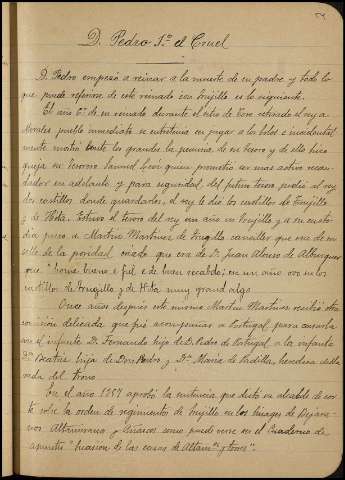 D. Pedro 1º el Cruel
D. Pedro empesó a reinar a la muerte de su padre y todo lo
que puede referirse de este reinado con Trujillo es lo siguiente.
El año 6º de su reinado durante el sitio de Toro retirado el rey a
Morales pueblo inmediato se entretenia en jugar a los bolos e incidental
mente mostró la grande penuria de su tesoro y de ello hizo
queja su Tesorero Samuel Levi quien prometió ser mas activo recau-
dador en adelante y para seguridad del futuro tesoro pedia al rey
dos castillos donde guardarlos, el rey le dio los castillos de Trujillo
y de Hita. Estuvo el tesoro del rey un año en Trujillo y a su custo
dia puso a Martin Martinez de Trugillo canciller que era de su
sello de la poridad criado que era de D. Juan Alonso de Alburquer
que "home bueno e fiel e de buen recabdo; en un año ovo en los
castillos de Trugillo y de Hita muy grand algo
Once años despues este mismo Martin Martinez recibió otra
comisión delicada que fué acompañar a Portugal para casarla
con el infante D. Fernando hijo de D. Pedro de Portugal a la infanta
Dª Beatriz hija de Don Pedro y Dª Maria de Padilla, heredera decla
rada del trono.
En el año 1357 aprobó la sentencia que dictó su alcalde de cor
te sobre la orden de regimiento de Trujillo en los linages de Bejara
nos Altamirano y Añascos como puede verse en el Cuaderno de
apuntes "Sucesion de las casas de Altamnos y torres".